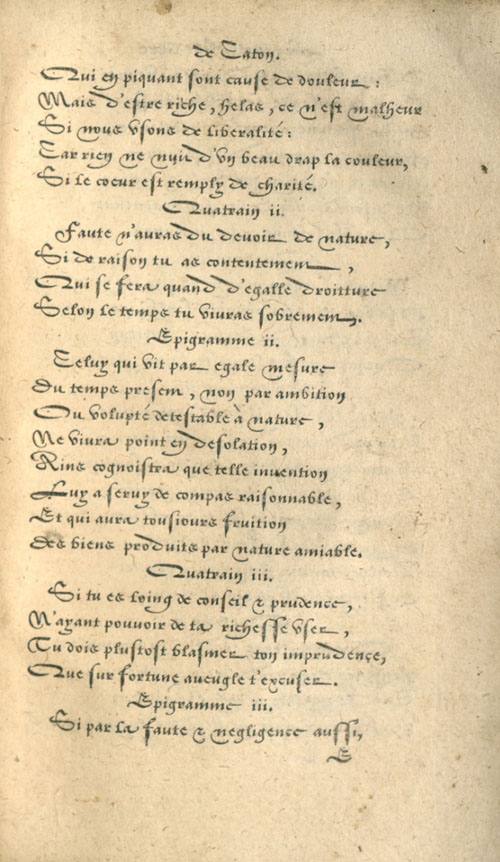 de Caton.
Qui en piquant sont cause de douleur :
Mais d'estre riche, helas, ce n'est malheur
Si nous vsons de liberalité :
Car rien ne nuit d'vn beau drap la couleur,
Si le coeur est remply de charité.
Quatrain ii.
Faute n'auras du deuoir de nature,
Si de raison tu as contentement,
Qui se fera quand d'egalle droitture
Selon le temps tu viuras sobrement.
Epigramme ii.
Celuy qui vit par egale mesure
Du temps present, non par ambition
Ou volupté detestable à nature,
Ne viura point en desolation,
Ains cognoistra que telle inuention
Luy a seruy de compas raisonnable,
Et qui aura tousiours fruition
Des biens produits par nature amiable.
Quatrain iii.
Si tu es loing de conseil & prudence,
N'ayant pouuoir de ta richesse vser,
Tu dois plustost blasmer ton imprudence,
Que sur fortune aueugle t'excuser.
Epigramme iii.
Si par la faute & negligence aussi,
E